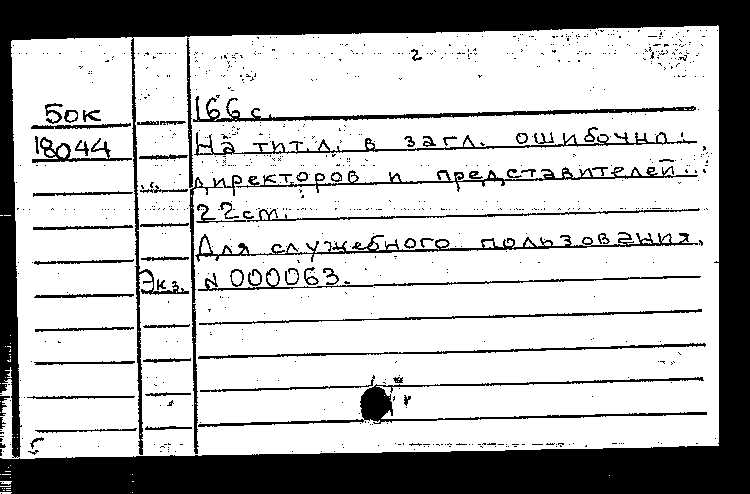 2
50к 166 с.
18044 На тит. л. в загл. ошибочно:
директоров и представителей...
22 cm.
Для служебного пользования.
Экз. N 000063.